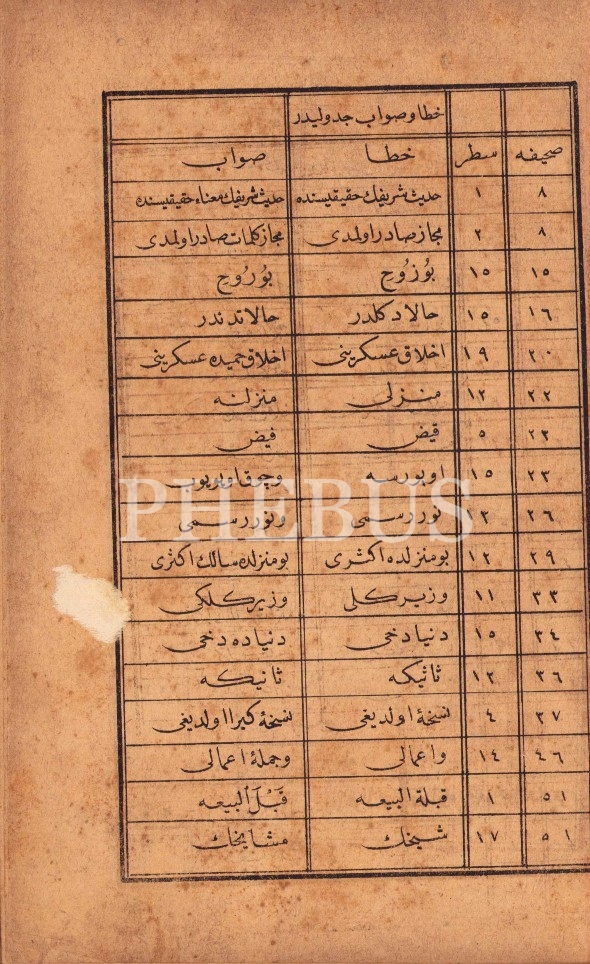 خطا و صواب جدوليدر
صحيفه سطر خطا صواب
٨ ١ حديث شريفك حقيقيسنده حديث شريفك معناء حقيقيسنده
٨ ٢ مجاز صادر اولمدى مجاز كلمات صادر اولمدى
١٥ ١٥ بُوزوُحِ بوُروُحِ
١٦ ١٥ حالا دكلدر حالاتدندر
٢٠ ١٩ اخلاق عسكرينى اخلاق حميده عسكرينى
٢٢ ١٢ منزلى منزلنه
٢٢ ٥ قيض فيض
٢٣ ١٥ اويورسه وچوق اويويوب
٢٦ ١٢ نور رسمى ونور رسمى
٢٩ ١٢ بو منزلده اكثرى بو منزلده سالك اكثرى
٣٣ ١١ وزير كلى وزير كلكى
٣٤ ١٥ دنيا دخى دنياده دخى
٣٦ ١٢ ثاثيكه ثانيكه
٣٧ ٤ نسخهٔ اولديغى نسخهٔ كبرا اولديغى
٤٦ ١٤ واعمالى وجملهٔ اعمالى
٥١ ١ قبلة البيعه قَبْلَ اَلبيعه
٥١ ١٧ شيخك مشايخك
PHEBUS